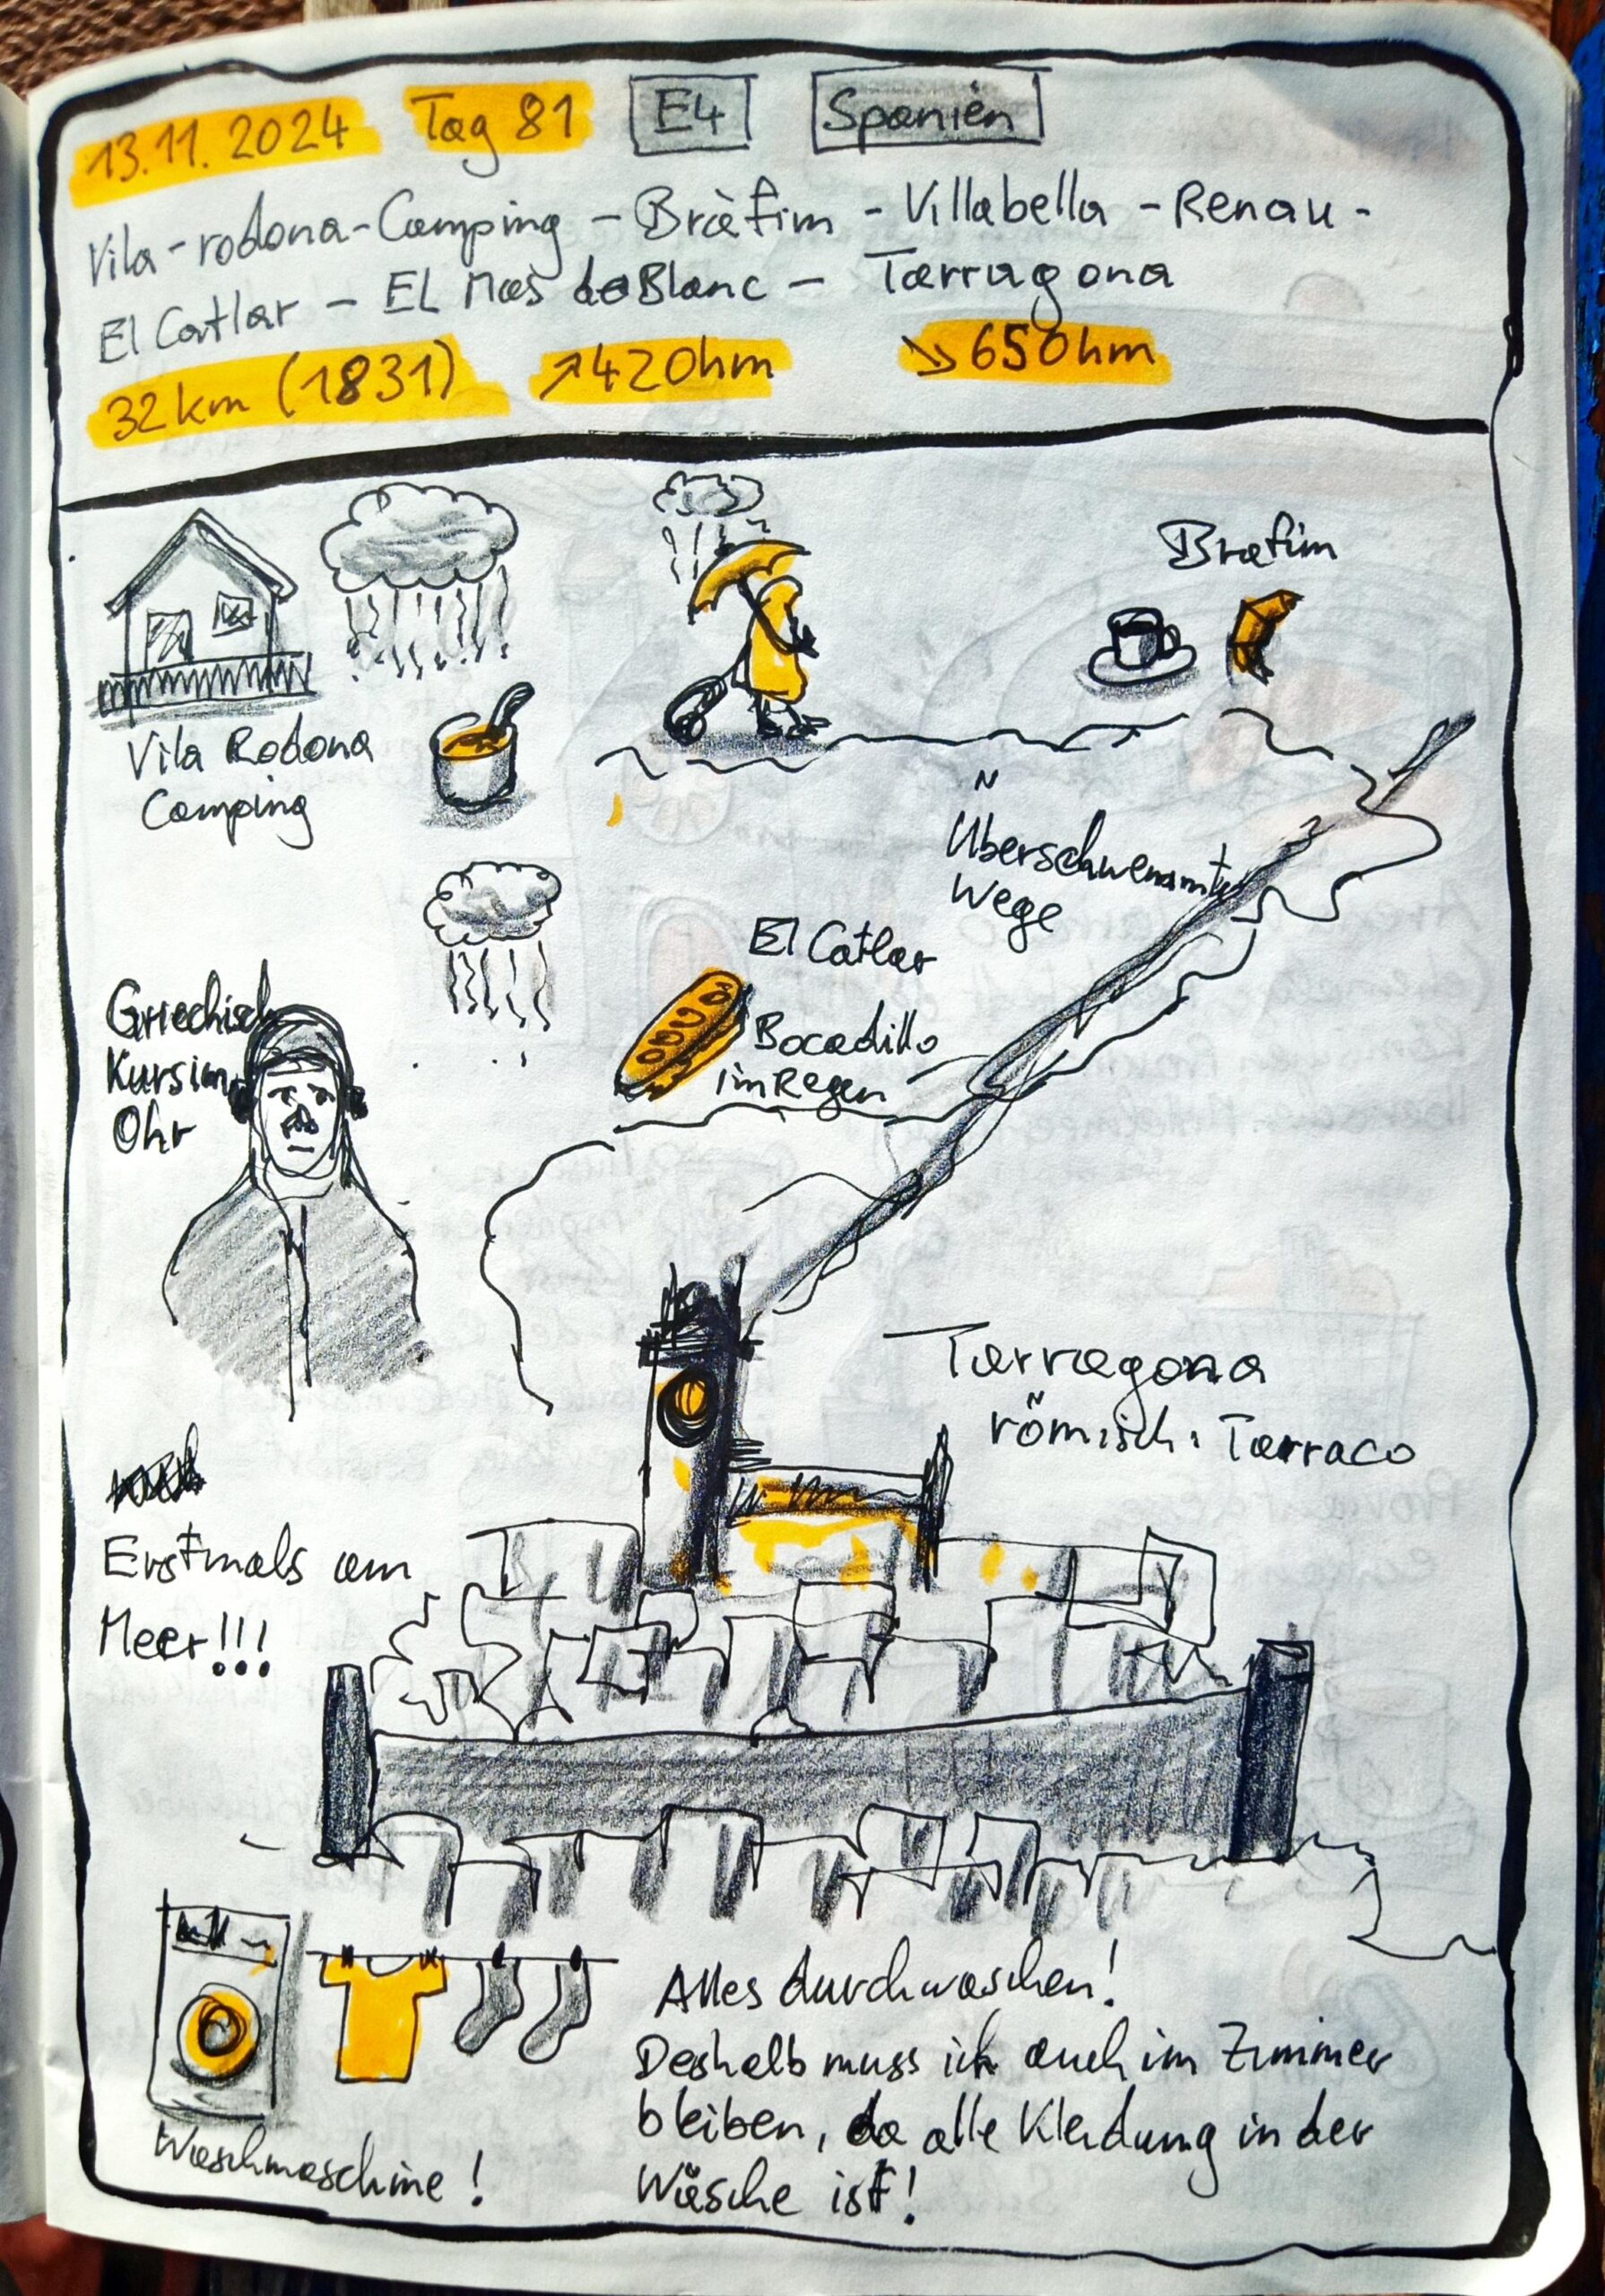 13.11.2024 Tag 81 E4 Spanien
Vila-rodona-Camping - Bràfim - Villabella - Renau -
El Catlar - El Mas de Blanc - Tarragona
32 km (1831) ↗420hm ↘650hm
Brafim
Vila Rodona
Camping
Überschwemmte
Wege
El Catlar
Bocadillo
im Regen
Griechisch
Kurs im
Ohr
Tarragona
römisch: Tarraco
Erstmals am
Meer!!!
Alles durchwaschen!
Deshalb muss ich auch im Zimmer
bleiben, da alle Kleidung in der
Wäsche ist!
Waschmaschine!